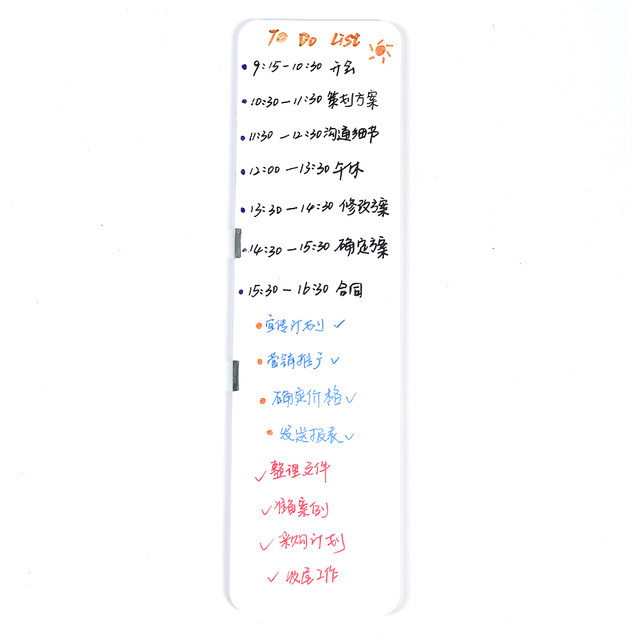 To Do List
9:15-10:30 开会
10:30-11:30 策划方案
11:30-12:30 沟通细节
12:00-13:30 午休
13:30-14:30 修改方案
14:30-15:30 确定方案
15:30-16:30 合同
宣传计划 ✓
营销推广 ✓
确定价格 ✓
发送报表 ✓
✓ 整理文件
✓ 准备案例
✓ 采购计划
✓ 收尾工作